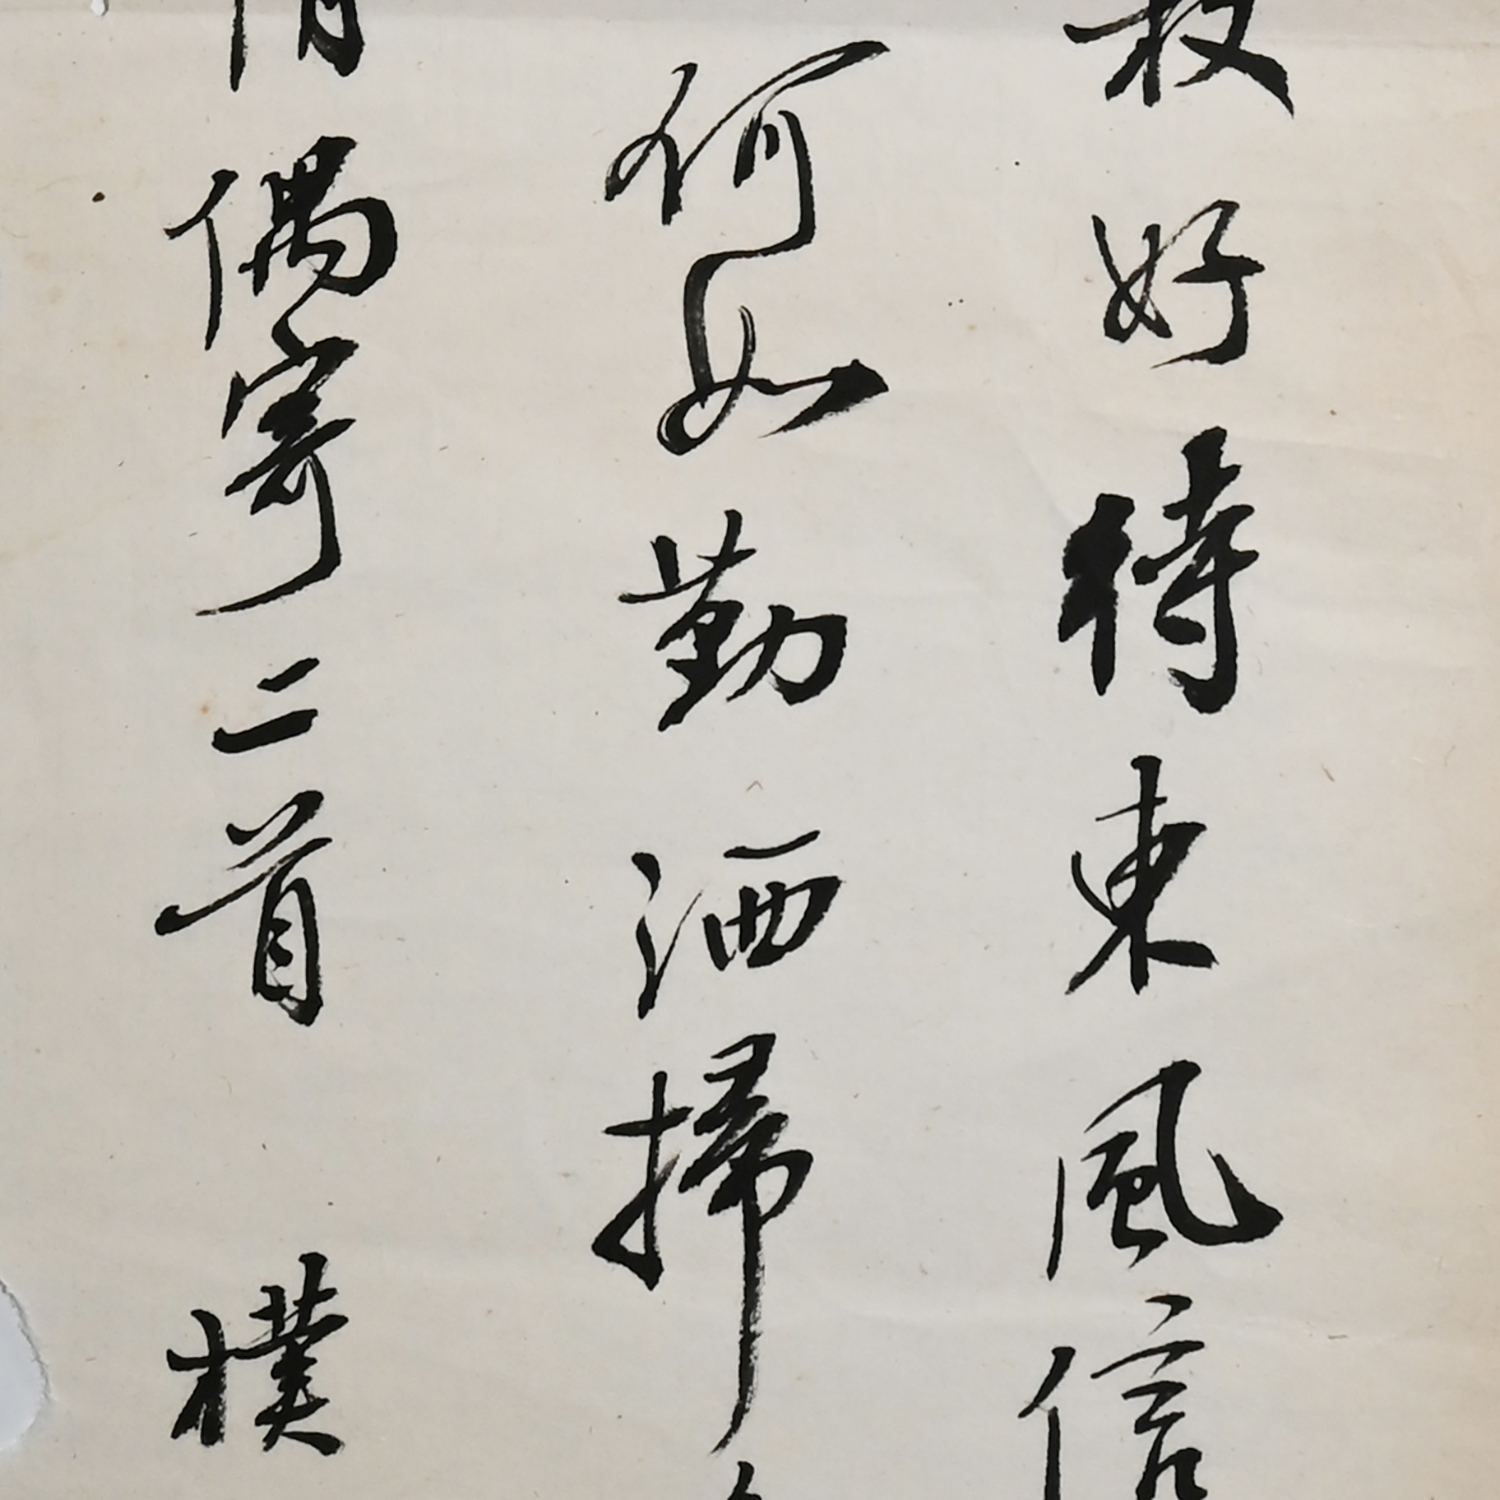 枚好待東風信
何如勤洒掃
偶寄二首 樸